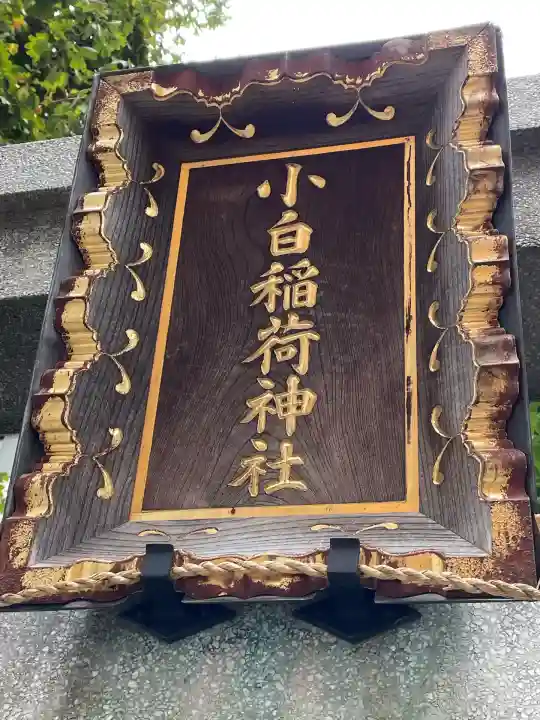 小白稲荷神社